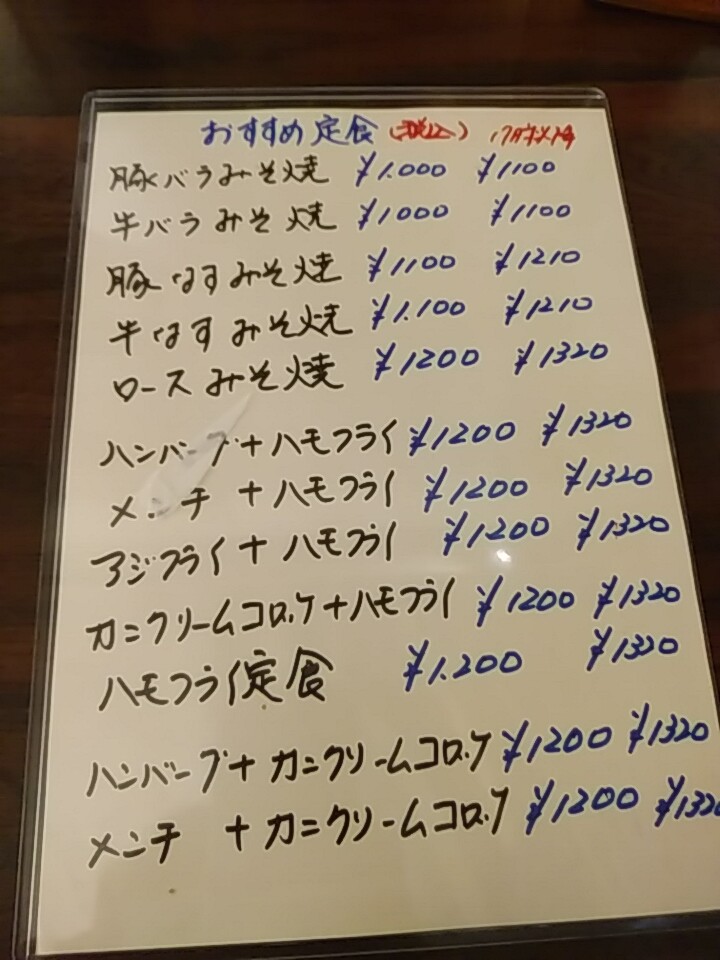 おすすめ定食 (税込) 17時以降
豚バラみそ焼 ¥1.000 ¥1100
牛バラみそ焼 ¥1000 ¥1100
豚なすみそ焼 ¥1100 ¥1210
牛なすみそ焼 ¥1.100 ¥1210
ロースみそ焼 ¥1200 ¥1320
ハンバーグ+ハモフライ ¥1200 ¥1320
メンチ +ハモフライ ¥1200 ¥1320
アジフライ+ハモフライ ¥1200 ¥1320
カニクリームコロッケ+ハモフライ ¥1200 ¥1320
ハモフライ定食 ¥1.200 ¥1320
ハンバーグ+カニクリームコロッケ ¥1200 ¥1320
メンチ +カニクリームコロッケ ¥1200 ¥1320